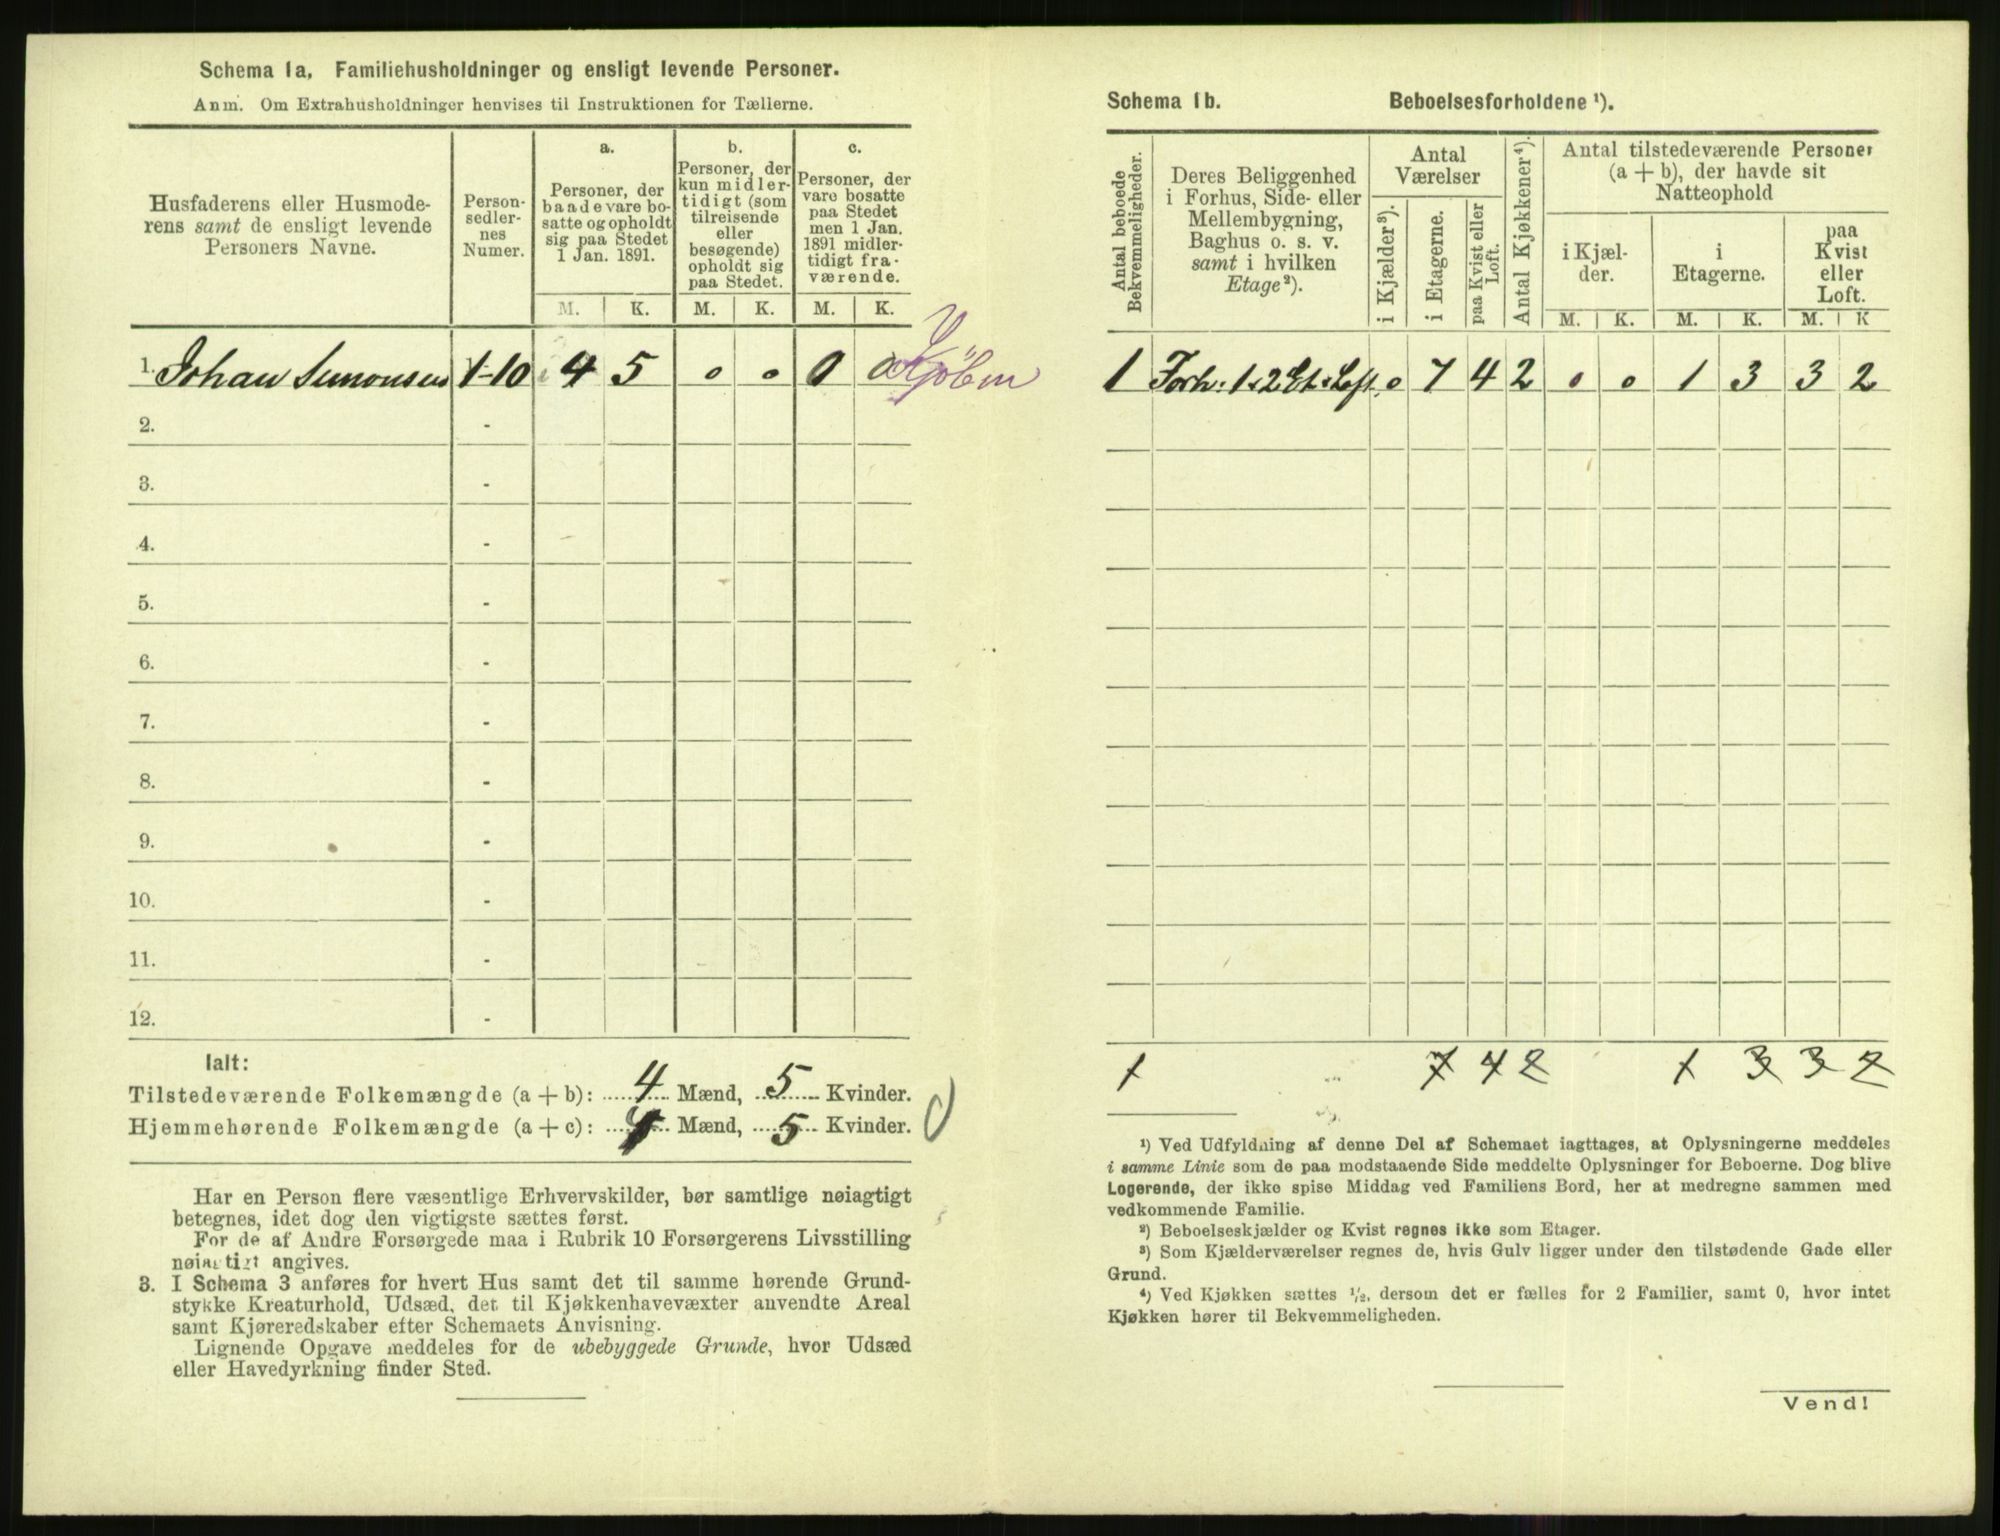 Schema 1a, Familiehusholdninger og ensligt levende Personer.
Anm. Om Extrahusholdninger henvises til Instruktionen for Tællerne.
Husfaderens eller Husmode-
rens samt de ensligt levende
Personers Navne.
Person-
sedler-
nes
Numer.
a.
Personer, der
baade vare bo-
satte og opholdt
sig paa Stedet
1 Jan. 1891.
b.
Personer, der
kun midler-
tidigt (som
tilreisende
eller
besøgende)
opholdt sig
paa Stedet.
c.
Personer, der
vare bosatte
paa Stedet
men 1 Jan.
1891 midler-
tidigt fra-
værende.
M. K. M. K. M. K.
1. Johan Simonsen 1-10 4 5 0 0 0 0
2. -
3. -
4. -
5. -
6. -
7. -
8. -
9. -
10. -
11. -
12. -
Ialt:
Tilstedeværende Folkemængde (a + b): 4 Mænd, 5 Kvinder.
Hjemmehørende Folkemængde (a + c): 4 Mænd, 5 Kvinder.
Har en Person flere væsentlige Erhvervskilder, bør samtlige nøiagtigt
betegnes, idet dog den vigtigste sættes først.
For de af Andre Forsørgede maa i Rubrik 10 Forsørgerens Livsstilling
nøiagtigt angives.
3. I Schema 3 anføres for hvert Hus samt det til samme hørende Grund-
stykke Kreaturhold, Udsæd, det til Kjøkkenhavevæxter anvendte Areal
samt Kjøreredskaber efter Schemaets Anvisning.
Lignende Opgave meddeles for de ubebyggede Grunde, hvor Udsæd
eller Havedyrkning finder Sted.
Schema 1b. Beboelsesforholdene ¹).
Antal beboede
Bekvemmeligheder.
Deres Beliggenhed
i Forhus, Side- eller
Mellembygning,
Baghus o. s. v.
samt i hvilken
Etage²).
Antal
Værelser
i Kjælder³).
i Etagerne.
paa Kvist eller
Loft.
Antal Kjøkkener⁴).
Antal tilstedeværende Personer
(a + b), der havde sit
Natteophold
i Kjæl-
der.
i
Etagerne.
paa
Kvist
eller
Loft.
M. K. M. K. M. K
1 Forh: 1 & 2 Et & Loft. 0 7 4 2 0 0 1 3 3 2
1 7 4 2 1 3 3 2
¹) Ved Udfyldning af denne Del af Schemaet iagttages, at Oplysningerne meddeles
i samme Linie som de paa modstaaende Side meddelte Oplysninger for Beboerne. Dog blive
Logerende, der ikke spise Middag ved Familiens Bord, her at medregne sammen med
vedkommende Familie.
²) Beboelseskjælder og Kvist regnes ikke som Etager.
³) Som Kjælderværelser regnes de, hvis Gulv ligger under den tilstødende Gade eller
Grund.
⁴) Ved Kjøkken sættes ½, dersom det er fælles for 2 Familier, samt 0, hvor intet
Kjøkken hører til Bekvemmeligheden.
Vend!